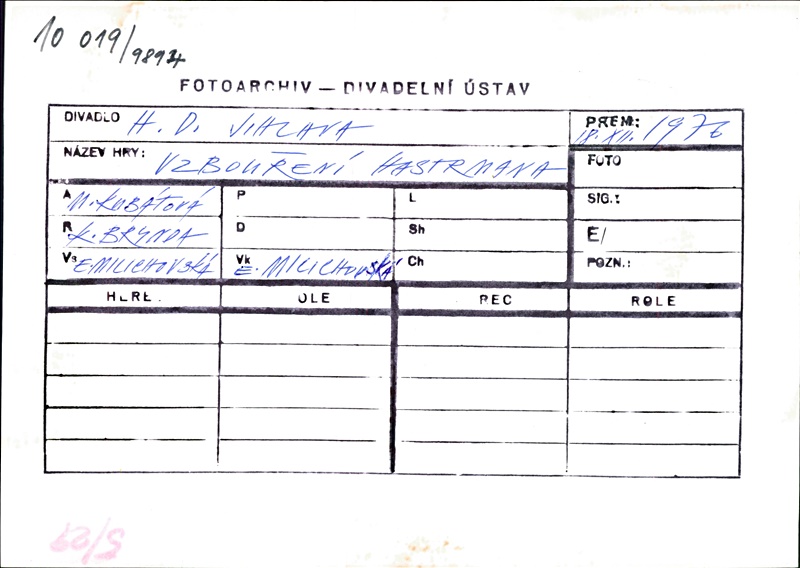 10 019/9894
FOTOARCHIV — DIVADELNÍ ÚSTAV
DIVADLO H. D. JIHLAVA
PREM: 18. XII. 1976
NÁZEV HRY: VZBOUŘENÍ HASTRMANA
FOTO
A M. KUBÁTOVÁ P L
SIG.:
R K. BRYNDA D Sh
E/
Vs E. MILICHOVSKÁ Vk E. MILICHOVSKÁ Ch
POZN.:
HERE. OLE REC ROLE
5/29